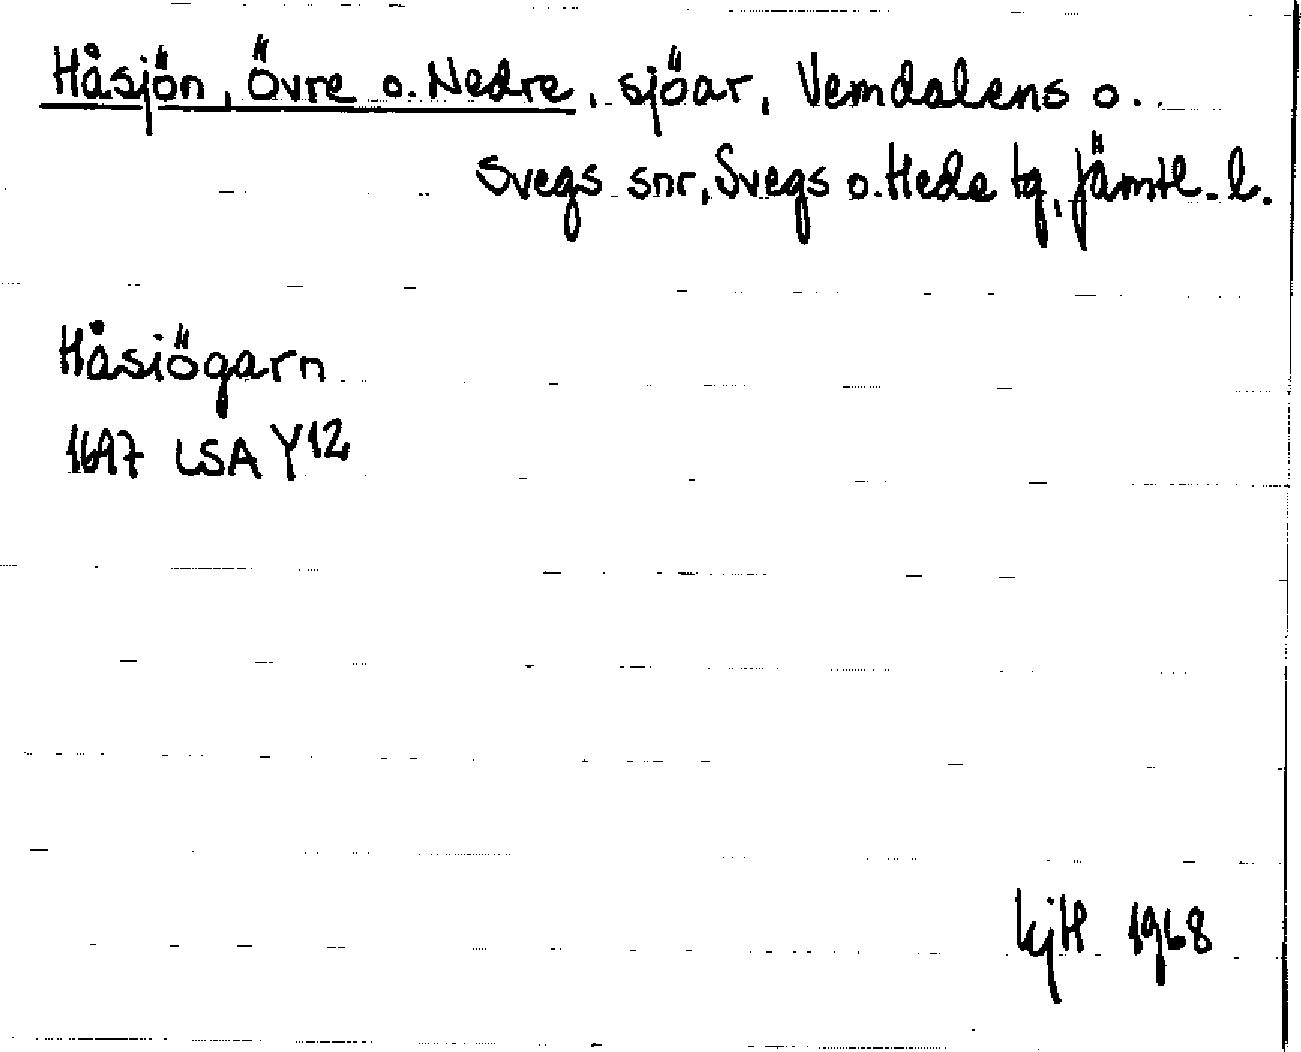 Håsjön, Övre o. Nedre, sjöar, Vemdalens o.
Svegs snr, Svegs o. Hede tg, Jämtl. l.
Håsiögarn
1697 LSA Y12
KjH 1968